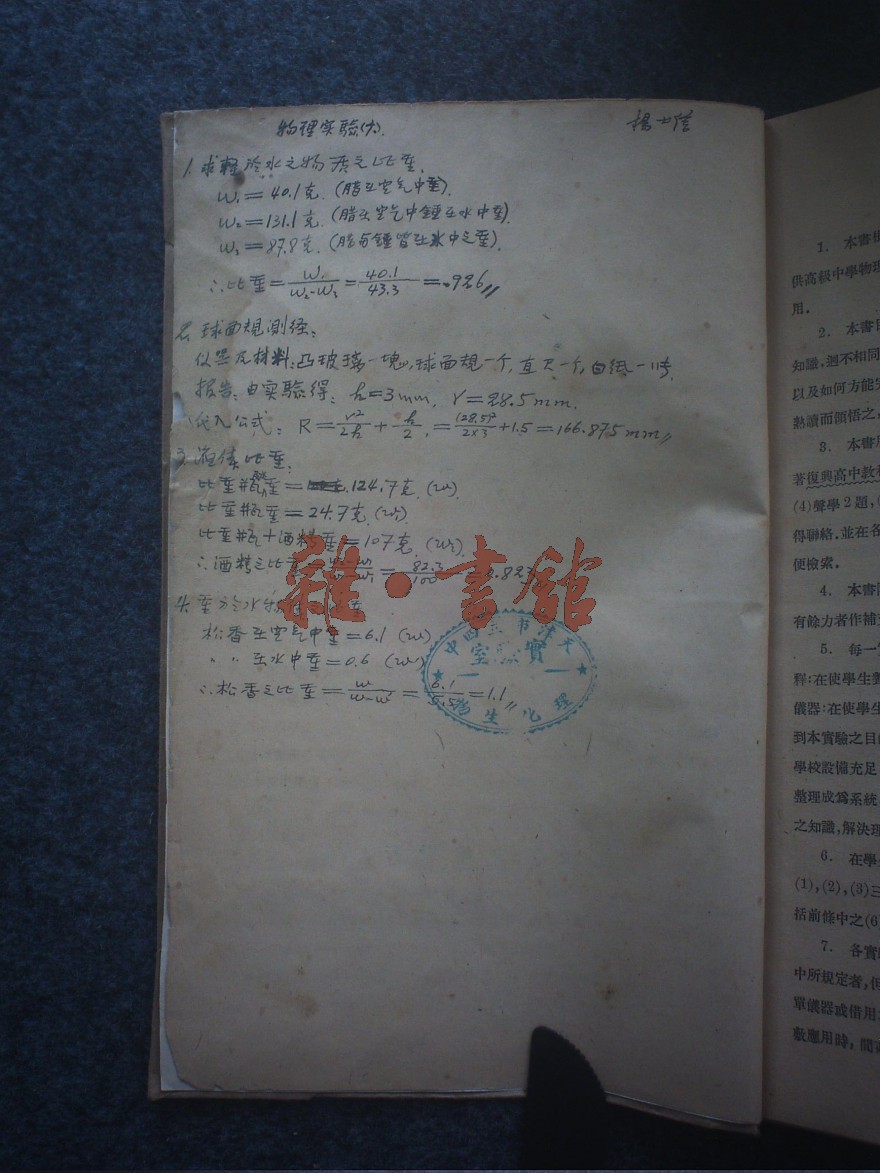 物理实驗(六).
楊士信
1. 求輕於水之物质之比重.
W₁=40.1克. (腊在空气中重).
W₂=131.1克. (腊在空气中錘在水中重)
W₃=87.8克. (腊与錘皆在水中之重).
∴比重=W₁/(W₂-W₃)=40.1/43.3=.926〃
2. 球面規測径:
仪器及材料:凸玻璃一塊,球面規一个,直尺一个,白纸一
报告: 由实驗得: h=3mm, r=28.5mm.
代入公式: R=r²/2h+h/2,=(28.5)²/2×3+1.5=166.875mm〃
3. 液体比重:
比重瓶重=124.7克 (w)
比重瓶重=24.7克. (w₁)
比重瓶+酒精重=107克. (w₂).
∴酒精之比重=82.3/100=.823
4. 重於水物
松香在空气中重=6.1 (w)
〃 〃 在水中重=0.6 (w')
∴松香之比重=w/(w-w')=6.1/5.5=1.1〃
雜·書館
天津市立四中
實驗室
理化生物
1. 本書
供高級中學物理
用.
2. 本書
知識,遇不相同
以及如何方能
熱讀而領悟之,
3. 本書
著復興高中教
(4)聲學2題,(
得聯絡,並在各
便檢索.
4. 本書
有餘力者作補
5. 每一
釋:在使學生
儀器:在使學生
到本實驗之目
學校設備充足
整理成爲系統
之知識,解決
6. 在學
(1),(2),(3)三
括前條中之(6
7. 各實
中所規定者,但
單儀器或借用
數應用時,間